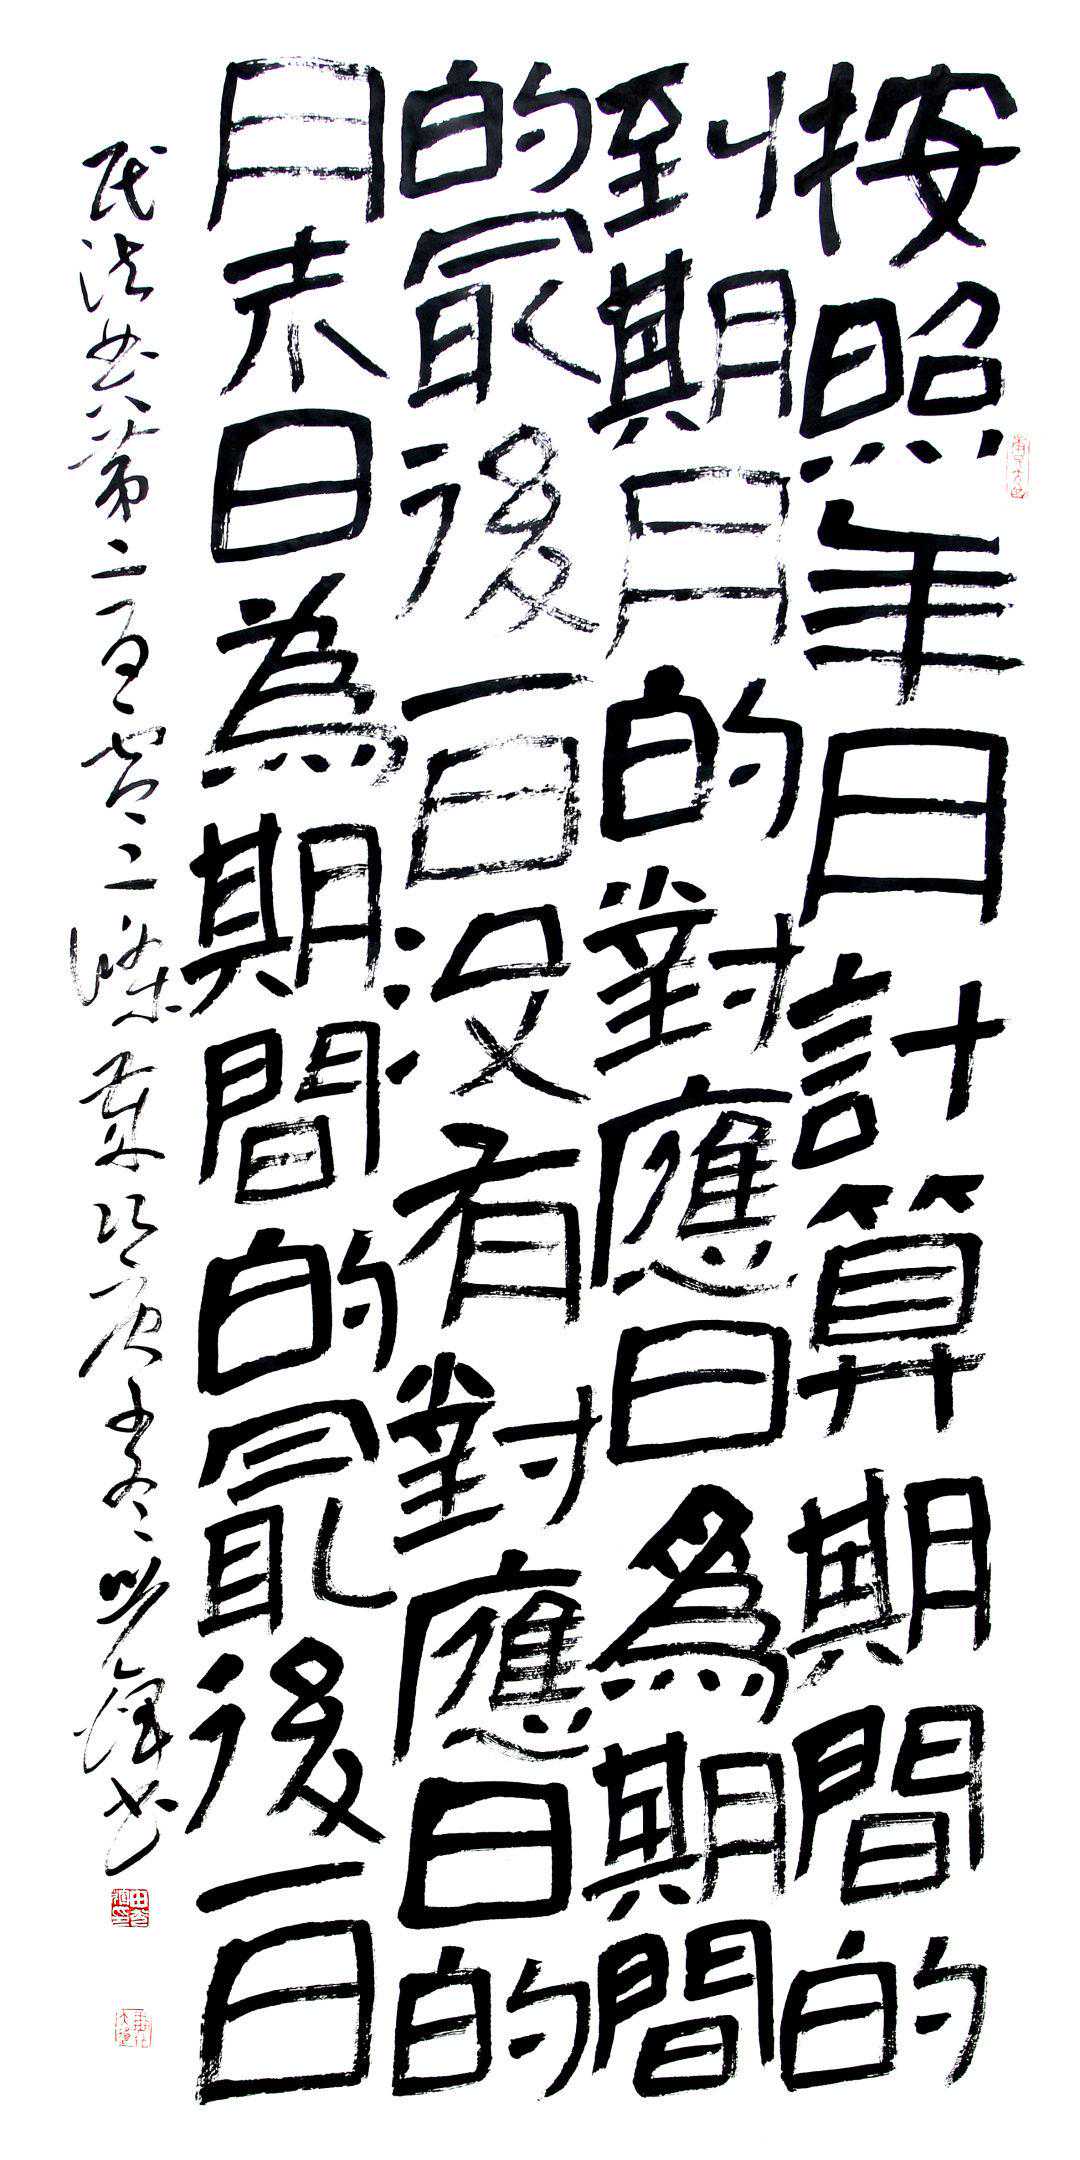 按照年月計算期間的
到期月的對應日爲期間
的最後一日没有對應日的
月末日為期間的最後一日
民法典第二百零二條歲次庚子冬書